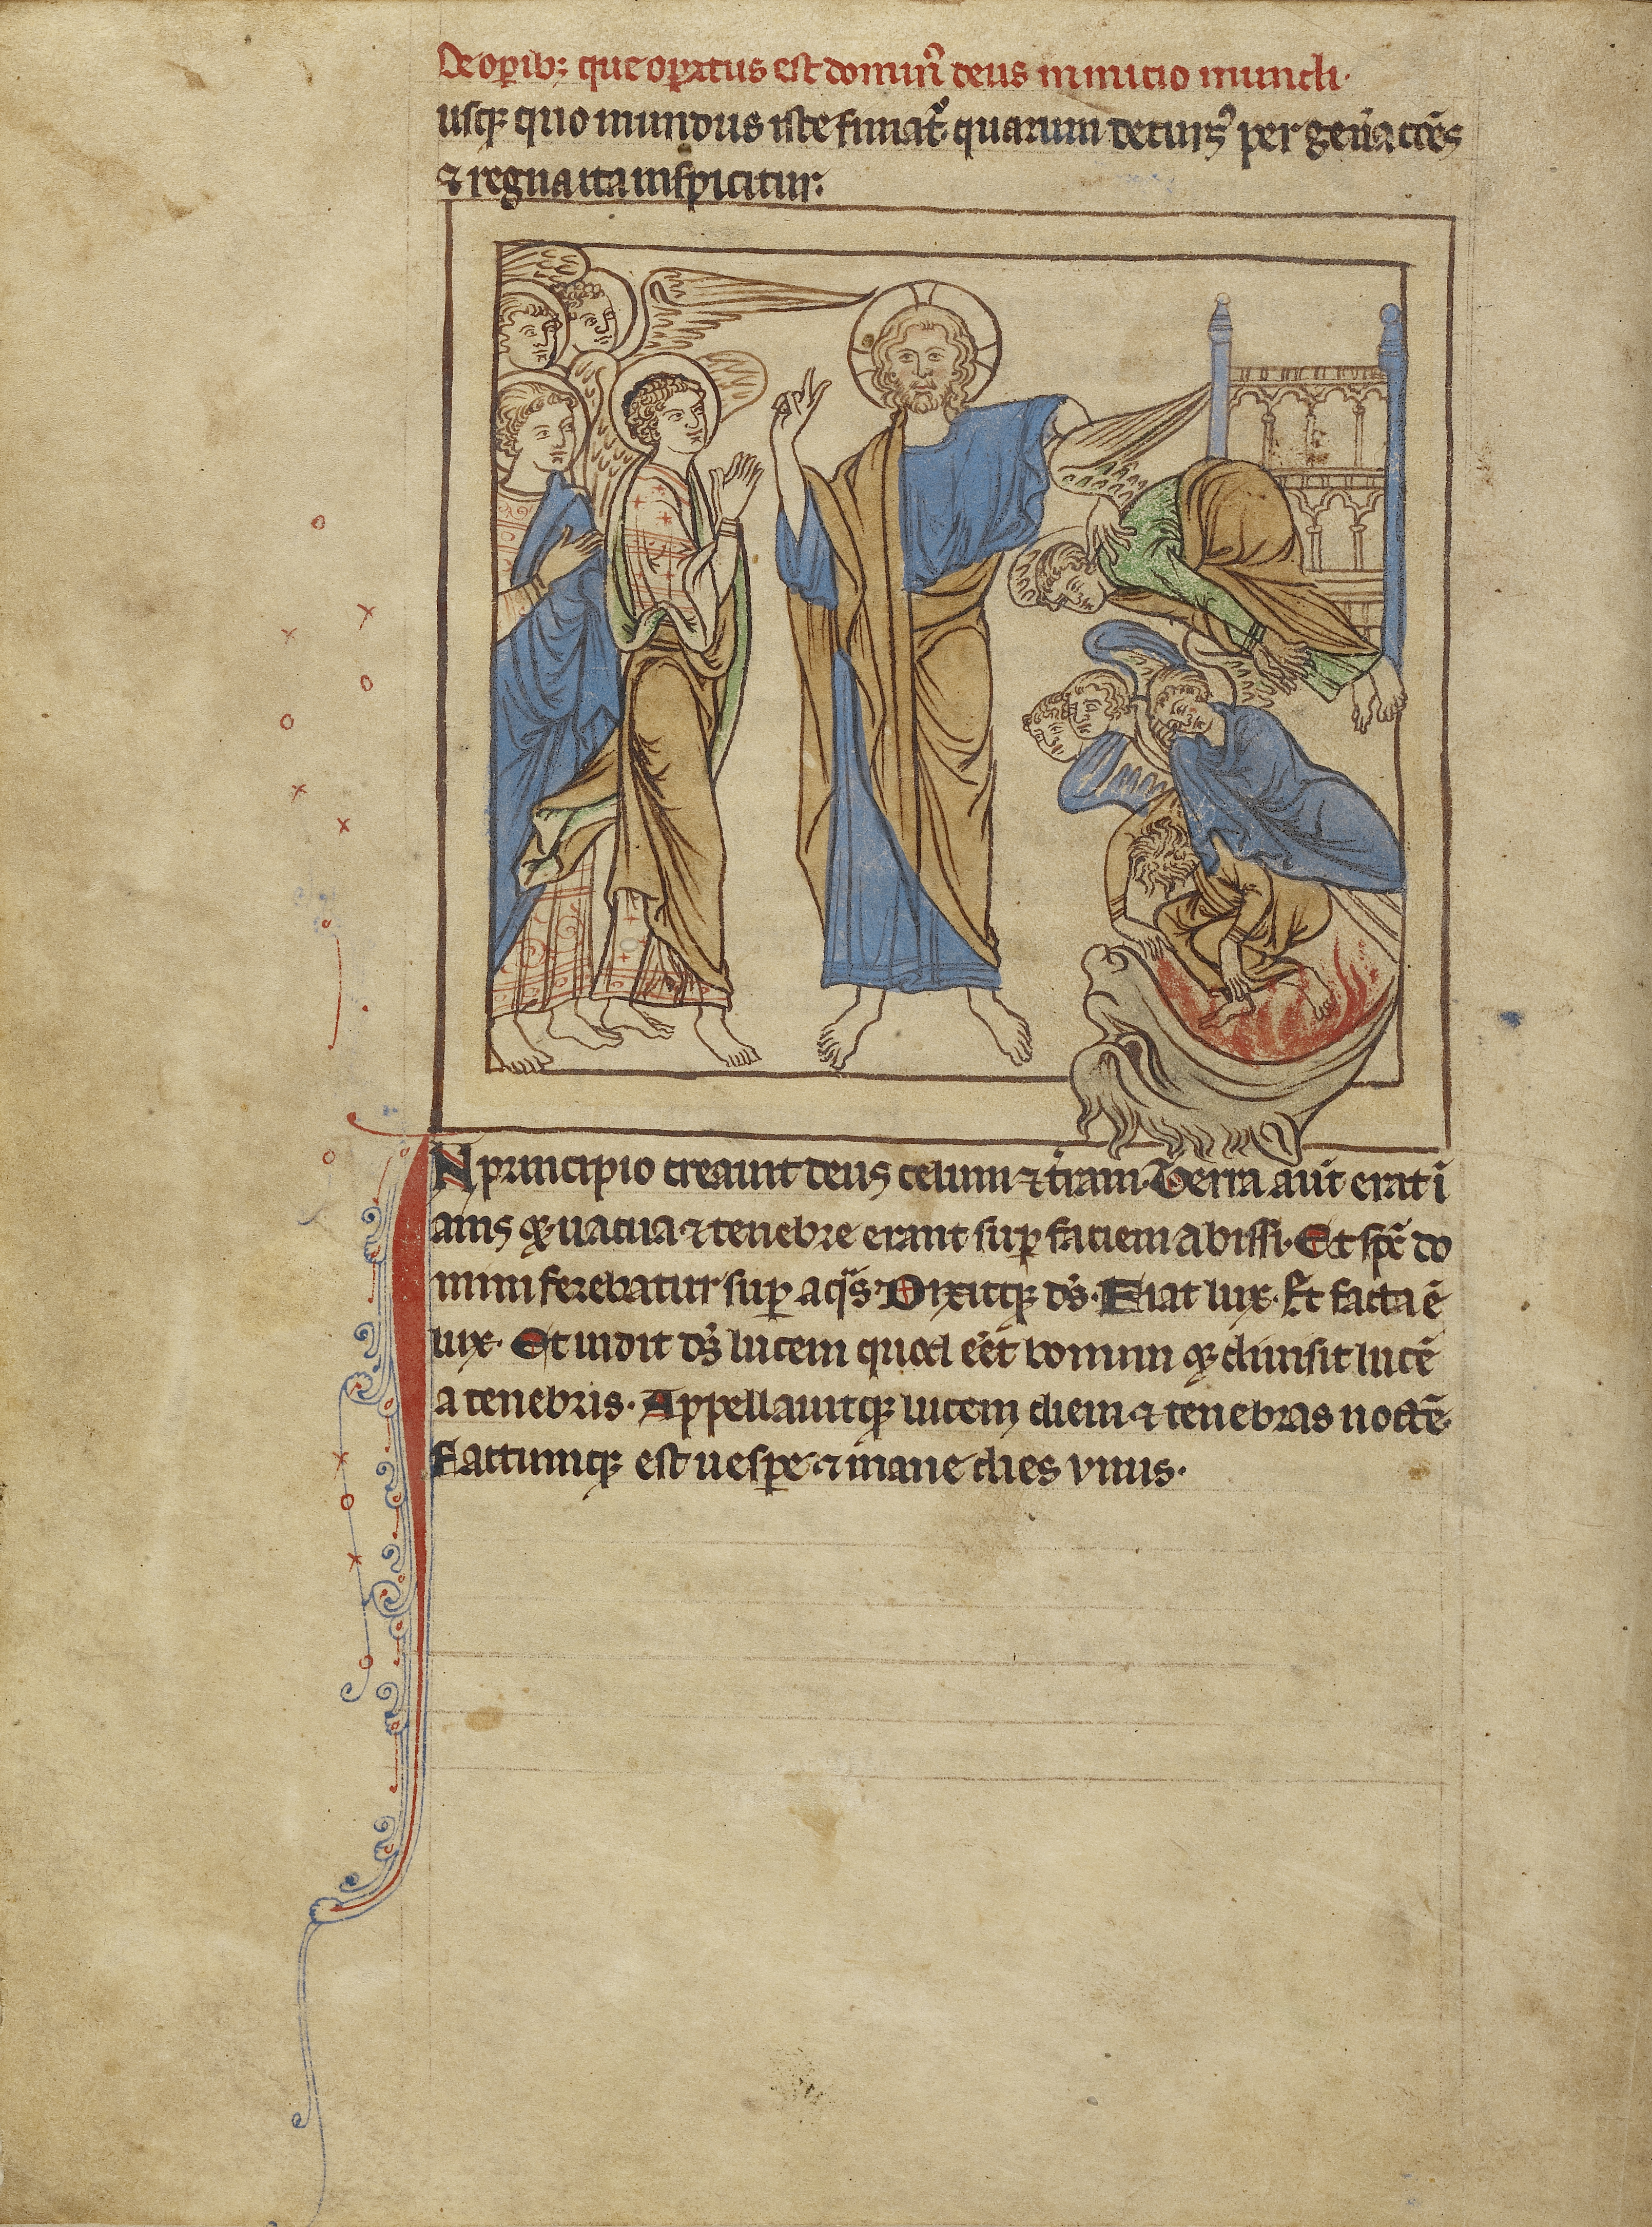 De op̄ib; que op̄atus est domin᷒ deus in inicio mundi.
usq; quo mundus iste finiat᷒. quarum decurs᷒ per gen̄acões
⁊ regna ita inspicitur.
IN principio creauit deus celum ⁊ t̄ram. Terra aūt erat i
anis q; uacua. ⁊ tenebre erant sup̄ faciem abissi. Et sp̄c do
mini ferebatur sup̄ aq̄s. Dixitq; ds̄. Fiat lux. Et facta ē
lux. Et uidit ds̄ lucem quod eēt bonum q; diuisit lucē
a tenebris. Appellauitq; lucem diem ⁊ tenebras noctē.
Factumq; est uespe ⁊ mane dies vnus.